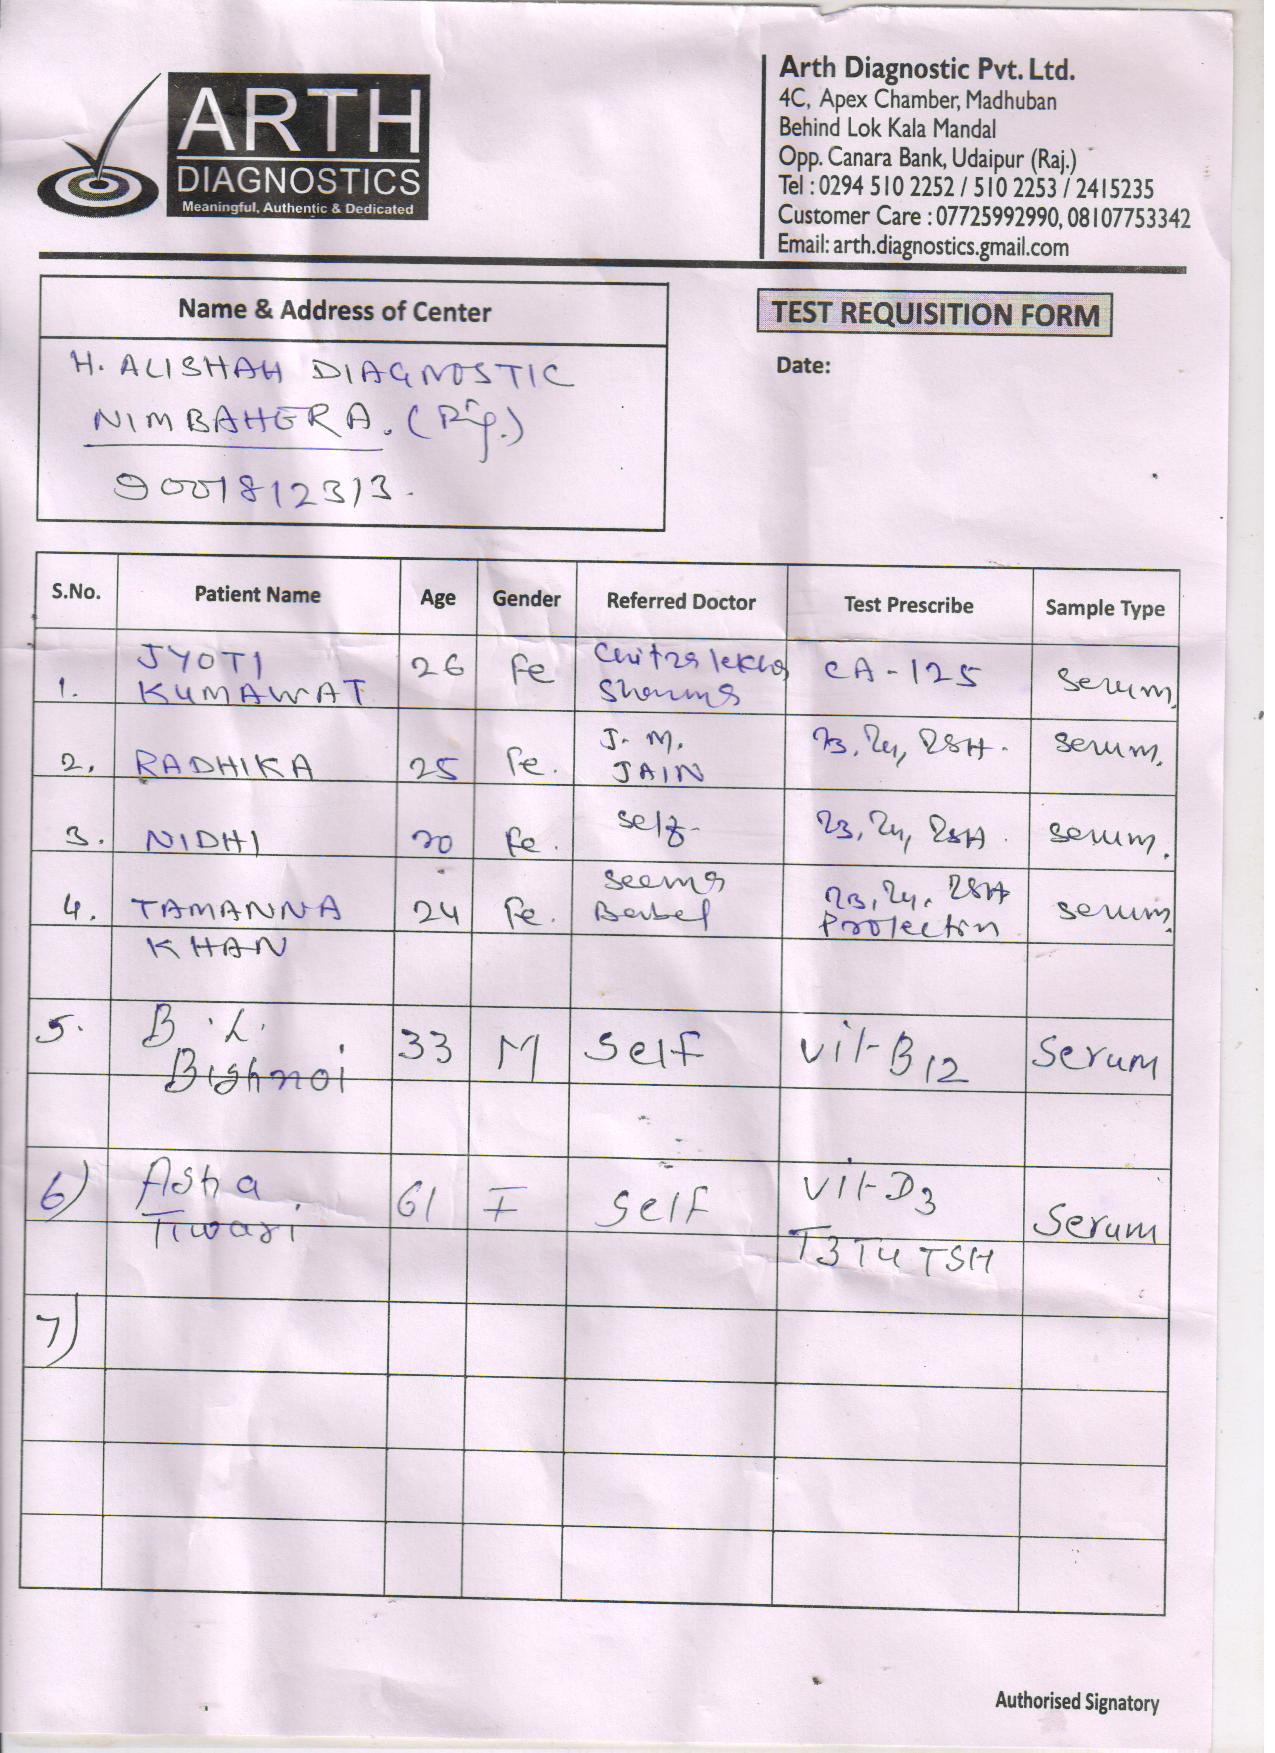 ARTH
DIAGNOSTICS
Meaningful, Authentic & Dedicated
Arth Diagnostic Pvt. Ltd.
4C, Apex Chamber, Madhuban
Behind Lok Kala Mandal
Opp. Canara Bank, Udaipur (Raj.)
Tel : 0294 510 2252 / 510 2253 / 2415235
Customer Care : 07725992990, 08107753342
Email: arth.diagnostics.gmail.com
Name & Address of Center
H. ALISHAH DIAGNOSTIC
NIMBAHERA. (Rj.)
9001812313.
TEST REQUISITION FORM
Date:
S.No. Patient Name Age Gender Referred Doctor Test Prescribe Sample Type
1. JYOTI KUMAWAT 26 Fe Chitralekha Sharma CA-125 Serum,
2. RADHIKA 25 Fe. J. M. JAIN T3, T4, TSH. Serum.
3. NIDHI 20 Fe. Self T3, T4, TSH. Serum.
4. TAMANNA KHAN 24 Fe. Seema T3, T4, TSH Prolectin Serum.
5. B.L. Bishnoi 33 M Self Vit-B12 Serum
6) Asha Tiwari 61 F Self Vit-D3 T3 T4 TSH Serum
7)
Authorised Signatory